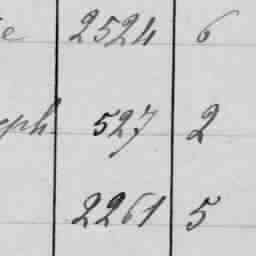 e 2524 6
ph 527 2
2261 5